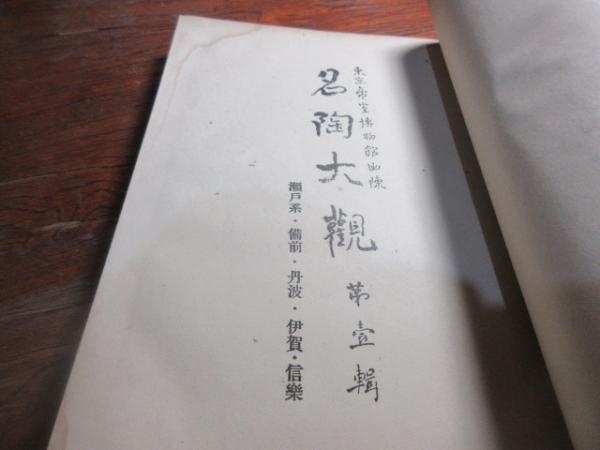 東京帝室博物館出陳
名陶大觀 第壹輯
瀬戸系・備前・丹波・伊賀・信樂